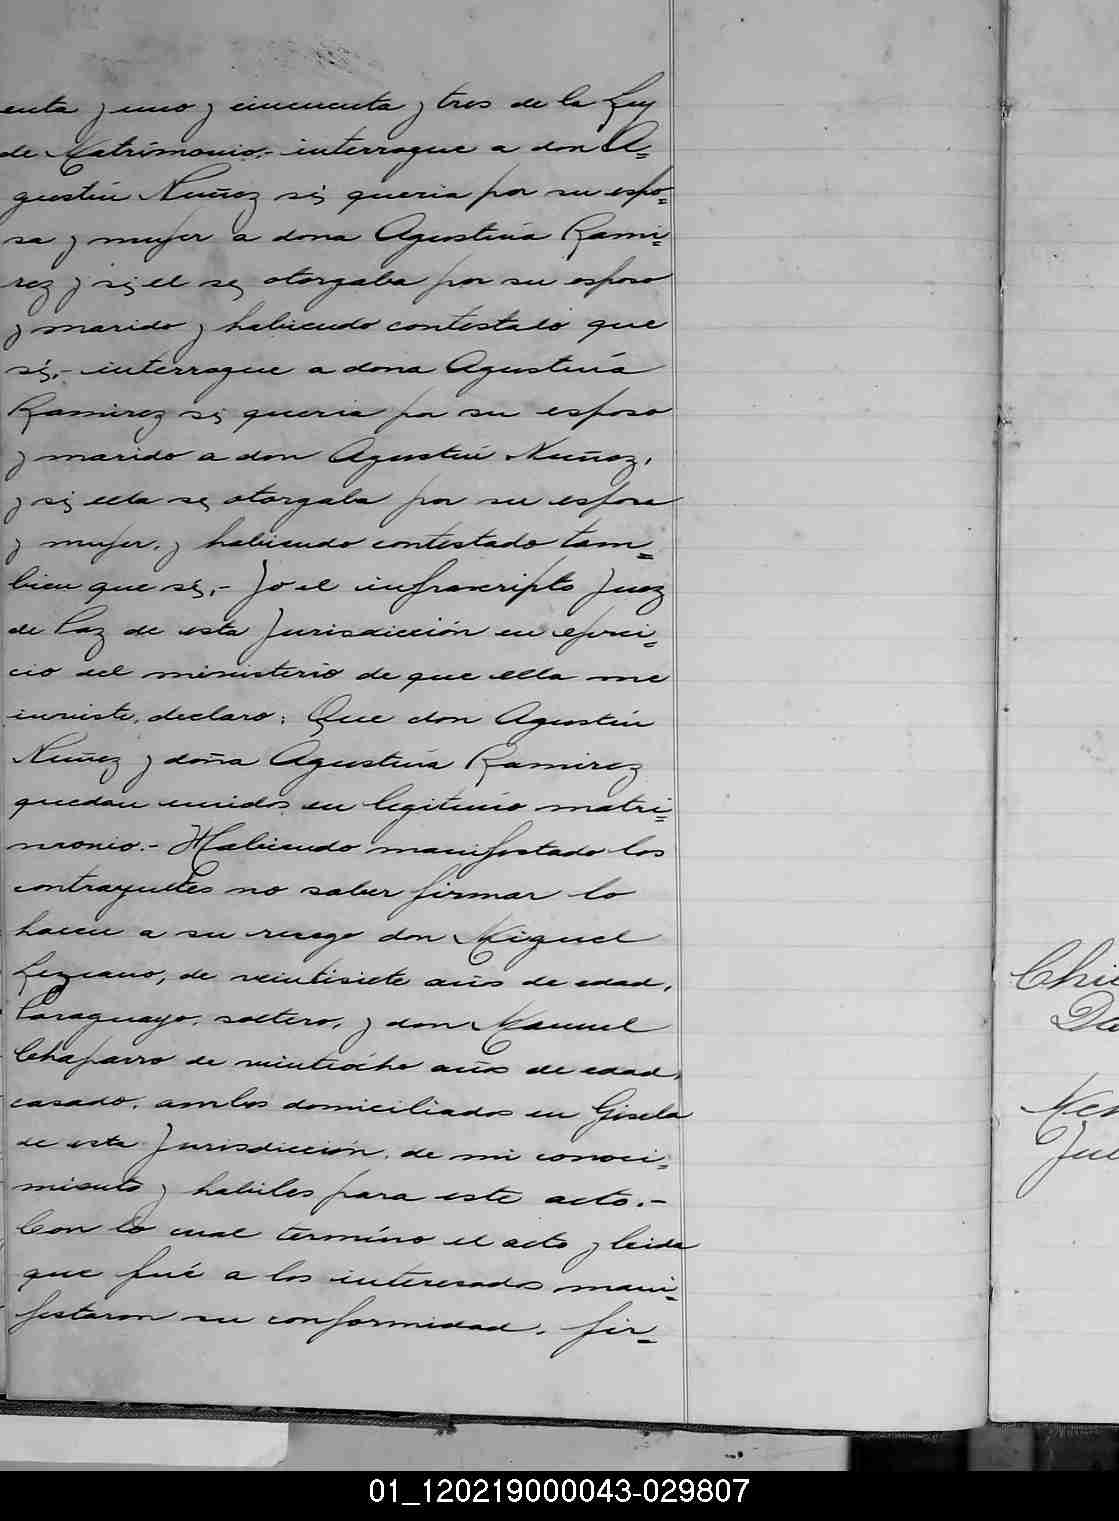 enta y uno y cincuenta y tres de la Ley
de Matrimonio,- interrogue a don A=
gustin Nuñez si queria por su espo=
sa y mujer a dona Agustina Rami=
rez y si el se otorgaba por su esposo
y marido y habiendo contestado que
si,- interrogue a dona Agustina
Ramirez si queria por su esposo
y marido a don Agustin Nuñez,
y si ella se otorgaba por su esposa
y mujer, y habiendo contestado tam=
bien que si,- Yo el infrascripto Juez
de Paz de esta Jurisdicción en ejerci=
cio del ministerio de que ella me
inviste, declaro: Que don Agustin
Nuñez y doña Agustina Ramirez
quedan unidos en legitimo matri=
monio.- Habiendo manifestado los
contrayentes no saber firmar lo
hacen a su ruego don Miguel
Lezcano, de veintisiete años de edad,
Paraguayo, soltero, y don Manuel
Chaparro de veintiocho años de edad,
casado, ambos domiciliados en Gisela
de esta Jurisdicción, de mi conoci=
miento y habiles para este acto.-
Con lo cual termino el acto y leida
que fué a los interesados mani=
festaron su conformidad, fir=
Chi
Da
Ju
01_120219000043-029807